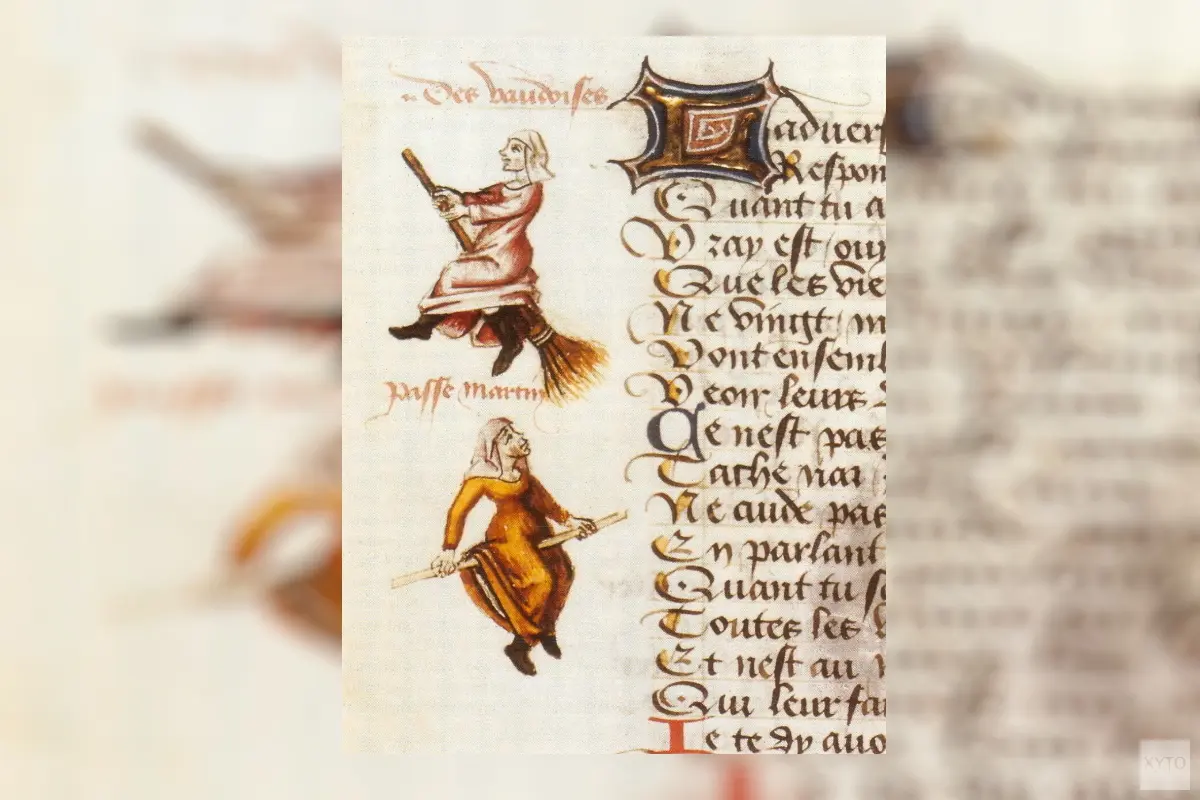 Des vaudoises
passe martin
Laduer
Respon
Quant tu a
Vray est ouy
Que les vie
Ne vingt m
Vont ensem
Veoir leurs
Ce nest pas
Tache nar
Ne cuide pas
En parlant
Quant tu
Toutes les
Et nest au
Qui leur fa
Ie te dy auo
XYTO